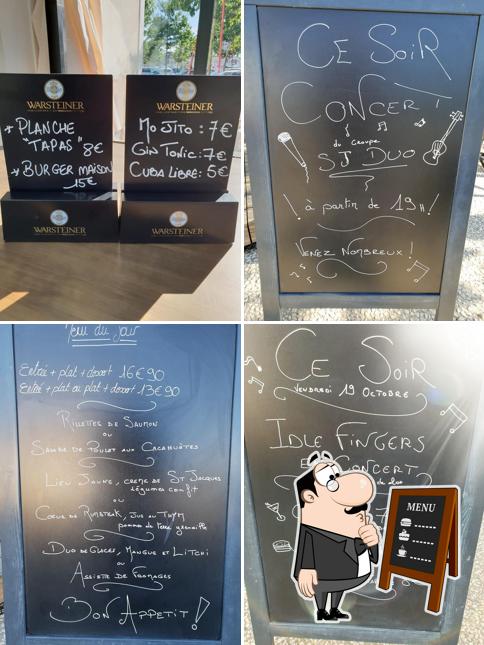 WARSTEINER
* PLANCHE
"TAPAS" 8€
* BURGER MAISON
15€
WARSTEINER
WARSTEINER
MOJITO : 7€
GIN TONIC : 7€
CUBA LIBRE : 5€
WARSTEINER
CE SOIR
CONCERT
du Groupe
ST DUO
! à partir de 19H !
VENEZ NOMBREUX !
Menu du jour
Entrée + plat + dessert 16€90
Entrée + plat ou plat + dessert 13€90
RILLETTES DE SAUMON
ou
SALADE DE POULET AUX CACAHUÈTES
LIEU JAUNE, CREME DE ST JACQUES
légumes confit
ou
COEUR DE RUMSTEAK, JUS AU THYM
pomme de Terre grenaille
DUO DE GLACES, MANGUE ET LITCHI
ou
ASSIETTE DE FROMAGES
BON APPETIT !
CE SOIR
VENDREDI 19 OCTOBRE
IDLE FINGERS
CONCERT
MENU